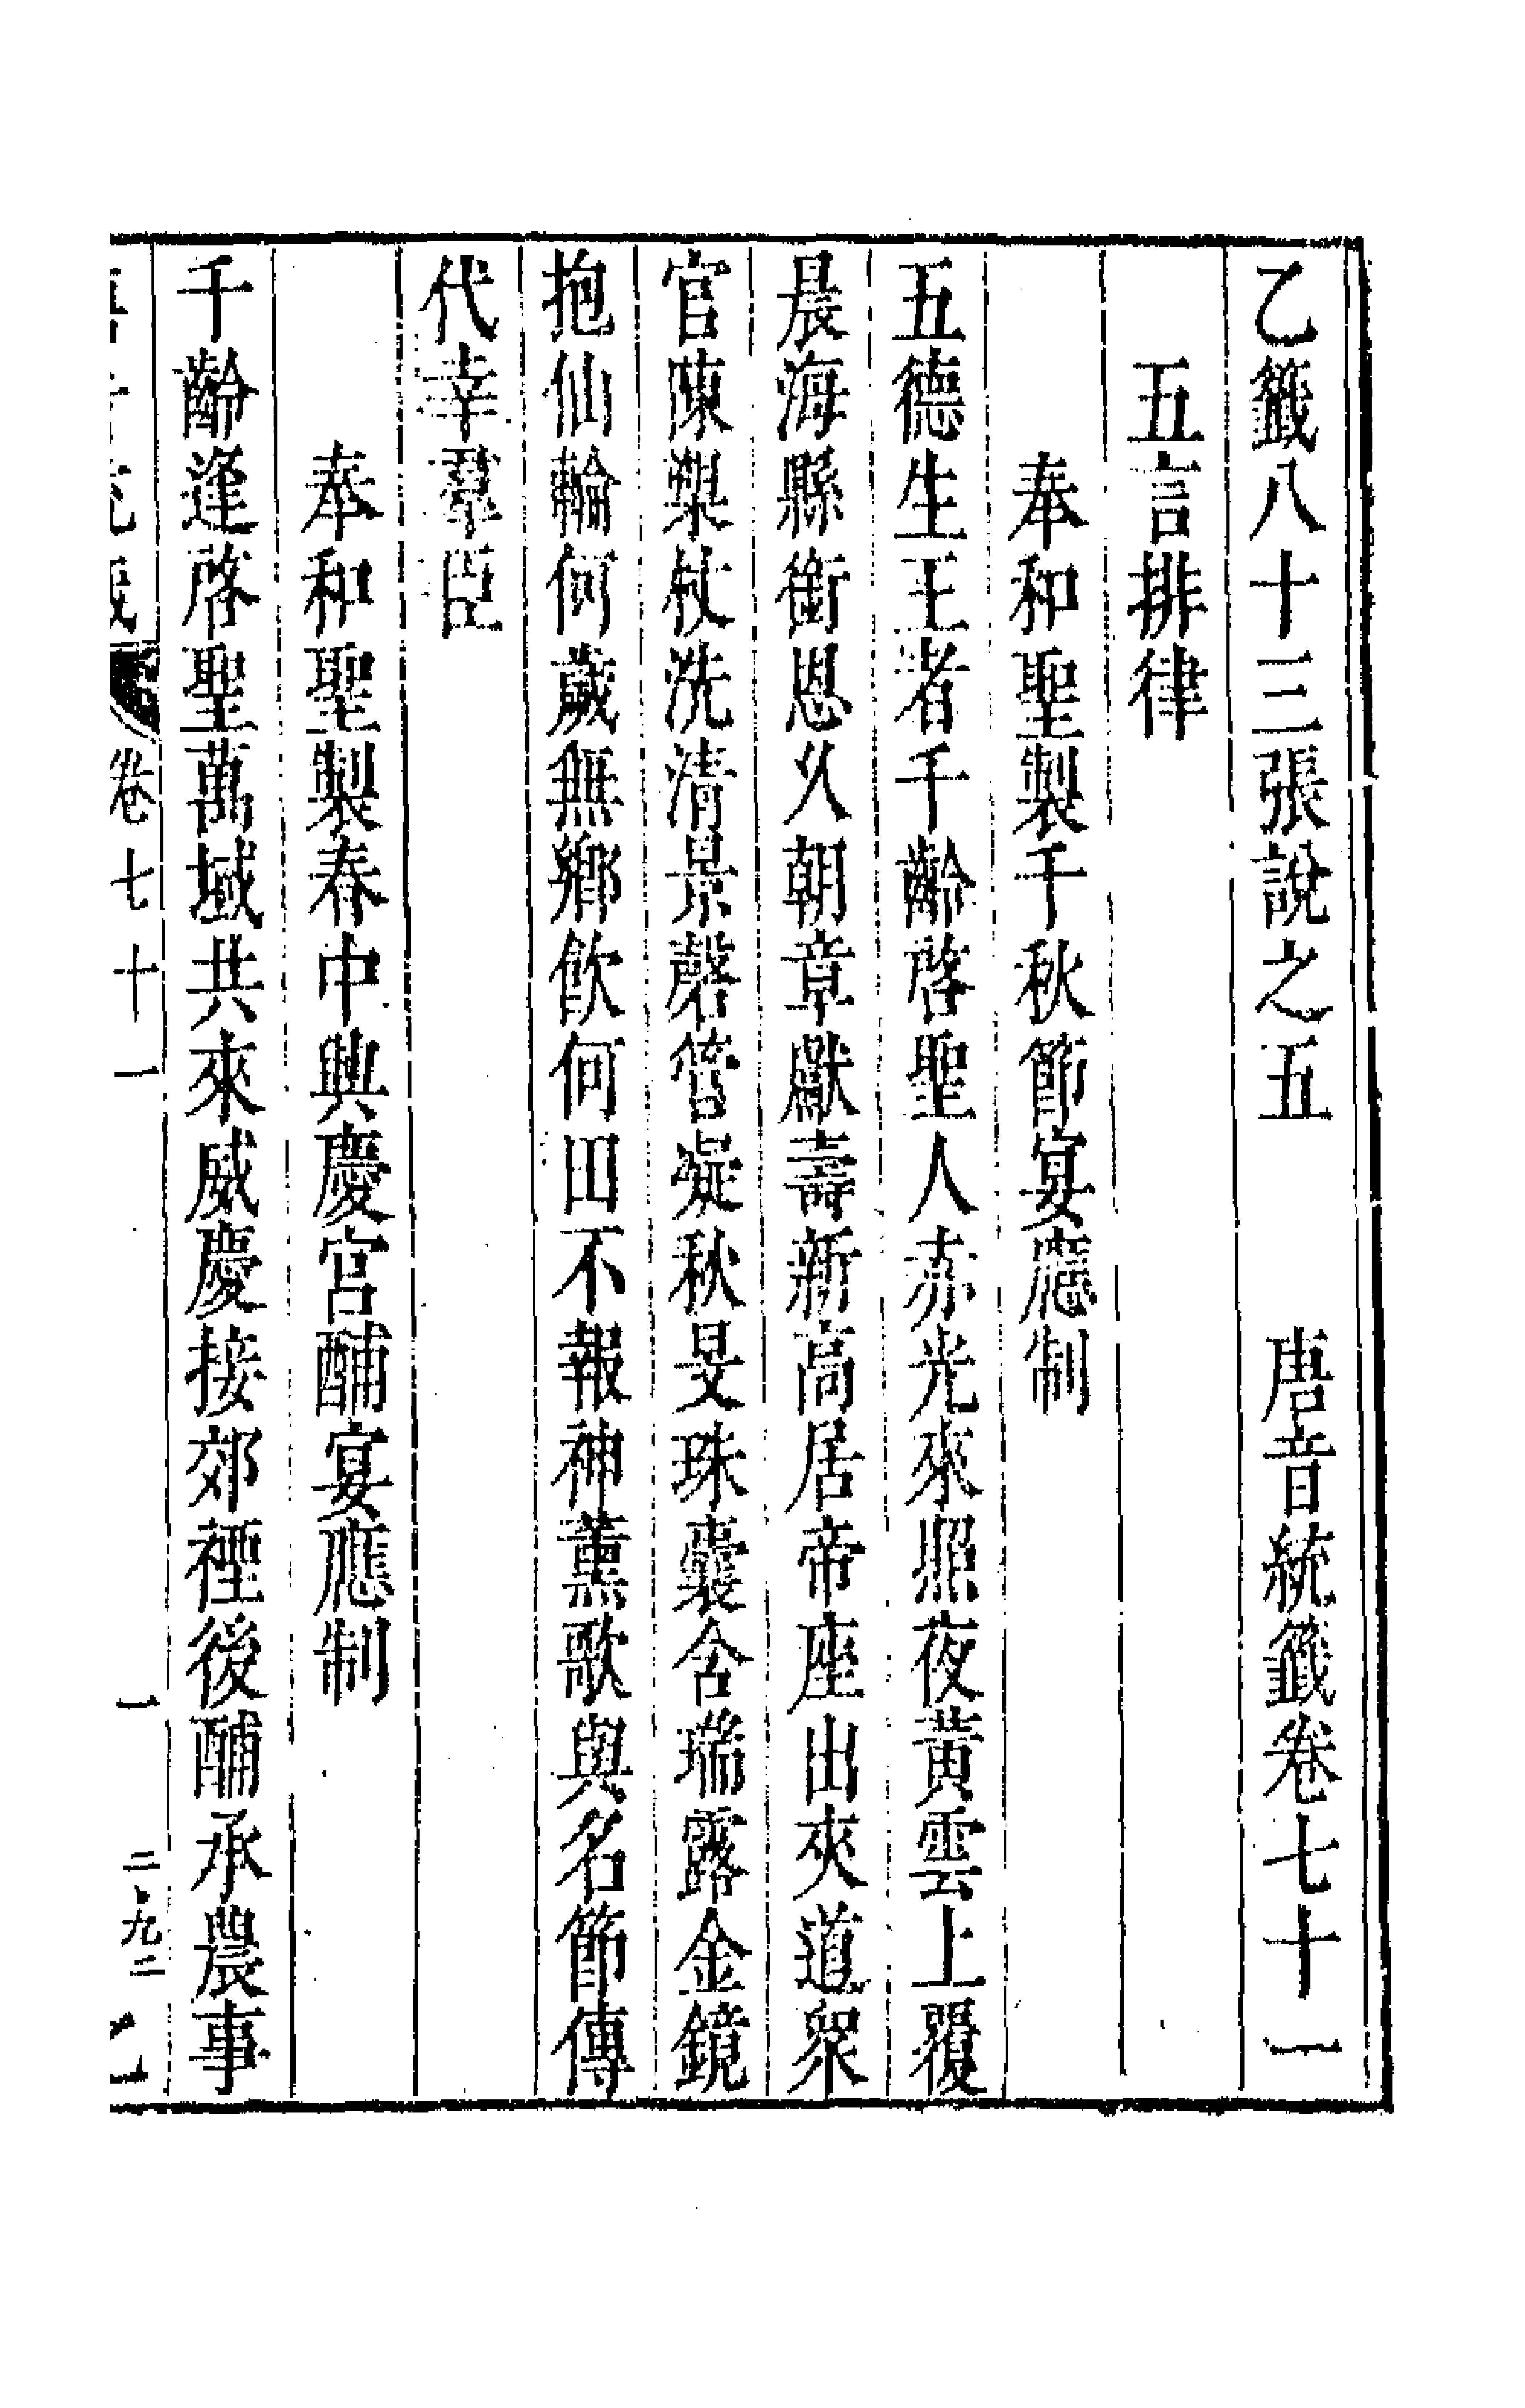 乙籖八十三張說之五　唐音統籖卷七十一
五言排律
奉和聖製千秋節宴應制
五德生王者千齡啓聖人赤光來照夜黃雲上覆
晨海縣銜恩久朝章獻壽新高居帝座出夾道衆
官陳槊杖洗清景磬管凝秋旻珠囊含瑞露金鏡
抱仙輪何歲無鄉飲何田不報神薰歌與名節傳
代幸羣臣
奉和聖製春中興慶宮酺宴應制
千齡逢啓聖萬域共來威慶接郊禋後酺承農事
卷七十一
一
二九二